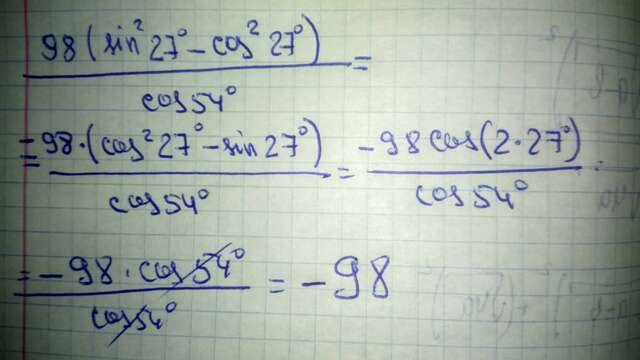 98(sin²27° - cos²27°) / cos54° =
= -98·(cos²27° - sin27°) / cos54° = -98cos(2·27°) / cos54° =
= -98·cos54° / cos54° = -98